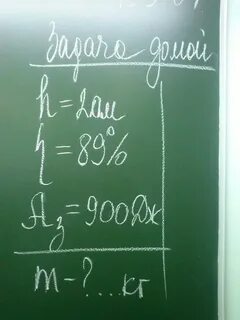 Задача домой
h = 2 дм
η = 89%
Aз = 900 Дж
m - ? .... кг